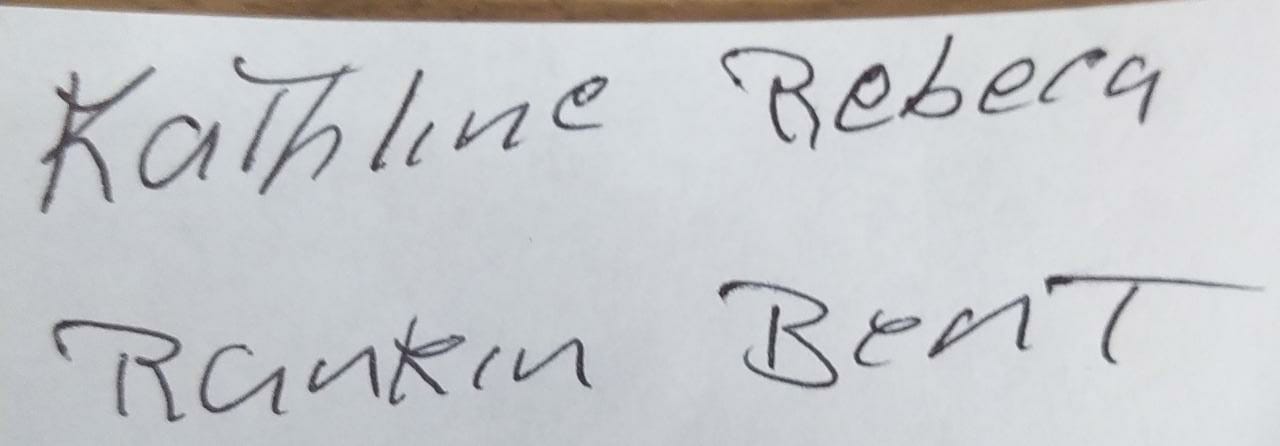 Kathline Rebeca
Rankin Bent